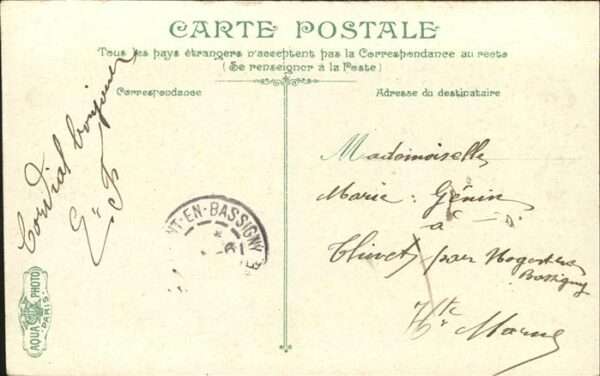 CARTE POSTALE
Tous les pays étrangers n'acceptent pas la Correspondance au recto
(Se renseigner à la Poste)
Correspondance
Adresse du destinataire
Cordial bonjour
E. F
NT-EN-BASSIGNY
Mademoiselle
Marie Génin
à
par Nogent en
Bassigny
Hte Marne
AQUA PHOTO
PARIS